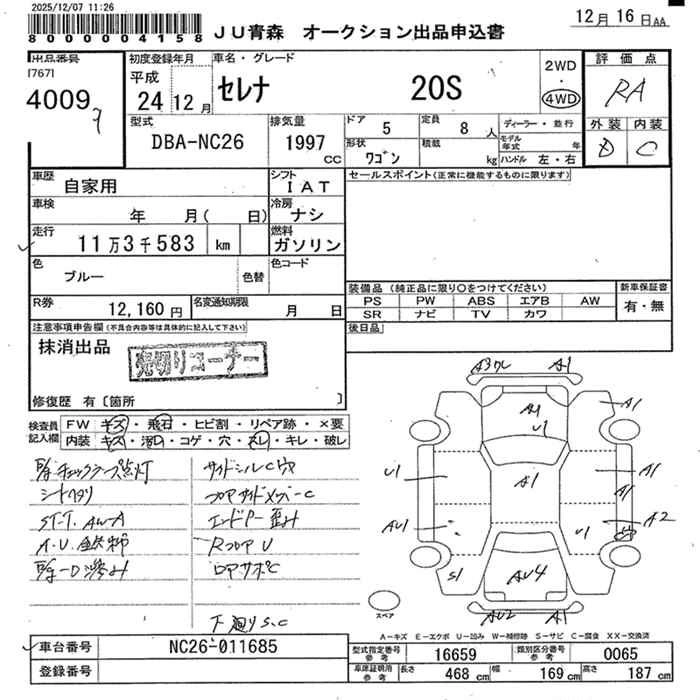 2025/12/07 11:26
8000004158
JU青森 オークション出品申込書
12月16日AA
出品番号
[767]
4009
7
初度登録年月
平成
24年12月
車名・グレード
セレナ 20S
2WD
・
4WD
評価点
RA
外装 内装
D C
型式
DBA-NC26
排気量
1997
CC
ドア 5
定員 8人
形状 ワゴン
積載 kg
ディーラー・並行
モデル年式 年
ハンドル 左・右
車歴 自家用
シフト IAT
セールスポイント(正常に機能するものに限ります)
車検 年 月( 日)
冷房 ナシ
走行 11万3千583 km
燃料 ガソリン
色 ブルー 色替
色コード
R券 12,160円
名変通知期限 月 日
装備品 (純正品に限り○をつけてください)
PS PW ABS エアB AW
SR ナビ TV カワ
新車保証書
有・無
後日品
注意事項申告欄(不具合内容等は具体的に記入して下さい)
抹消出品
売切りコーナー
修復歴 有〔箇所 〕
検査員記入欄
FW キズ・飛石・ヒビ割・リペア跡・×要
内装 キズ・汚レ・コゲ・穴・スレ・キレ・破レ
シートヘタリ
サイドシルC穴
エンドP-歪み
RフロアU
下廻りS.C
A3ワレ A1
A1
U1
A1
A1
U1
A1
A1
AU1
A2
U1
S1
AU4
AU2 A1
スペア
A-キズ E-エクボ U-凹み W-補修跡 S-サビ C-腐食 XX-交換済
車台番号 NC26-011685
登録番号
型式指定番号 参考 16659
類別区分番号 参考 0065
車庫証明用 参考 長さ 468 cm 幅 169 cm 高さ 187 cm